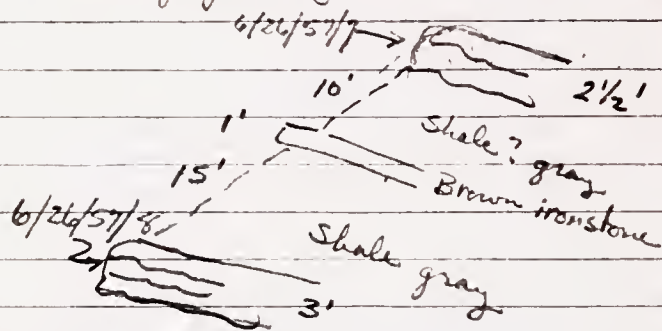 6/26/57/7
10'
2½'
1'
Shale? gray
15'
Brown ironstone
6/26/57/8
Shale gray
3'